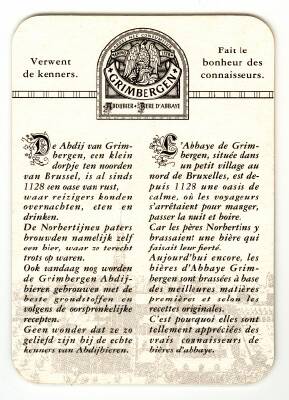 Verwent
de kenners.
Fait le
bonheur des
connaisseurs.
GRIMBERGEN
ABDIJBIER • BIÈRE D'ABBAYE
De Abdij van Grim-
bergen, een klein
dorpje ten noorden
van Brussel, is al sinds
1128 een oase van rust,
waar reizigers konden
overnachten, eten en
drinken.
De Norbertijnen paters
brouwden namelijk zelf
een bier, waar ze terecht
trots op waren.
Ook vandaag nog worden
de Grimbergen Abdij-
bieren gebrouwen met de
beste grondstoffen en
volgens de oorspronkelijke
recepten.
Geen wonder dat ze zo
geliefd zijn bij de echte
kenners van Abdijbieren.
L'Abbaye de Grim-
bergen, située dans
un petit village au
nord de Bruxelles, est de-
puis 1128 une oasis de
calme, où les voyageurs
s'arrêtaient pour manger,
passer la nuit et boire.
Car les pères Norbertins y
brassaient une bière qui
faisait leur fierté.
Aujourd'hui encore, les
bières d'Abbaye Grim-
bergen sont brassées à base
des meilleures matières
premières et selon les
recettes originales.
C'est pourquoi elles sont
tellement appréciées des
vrais connaisseurs de
bières d'abbaye.